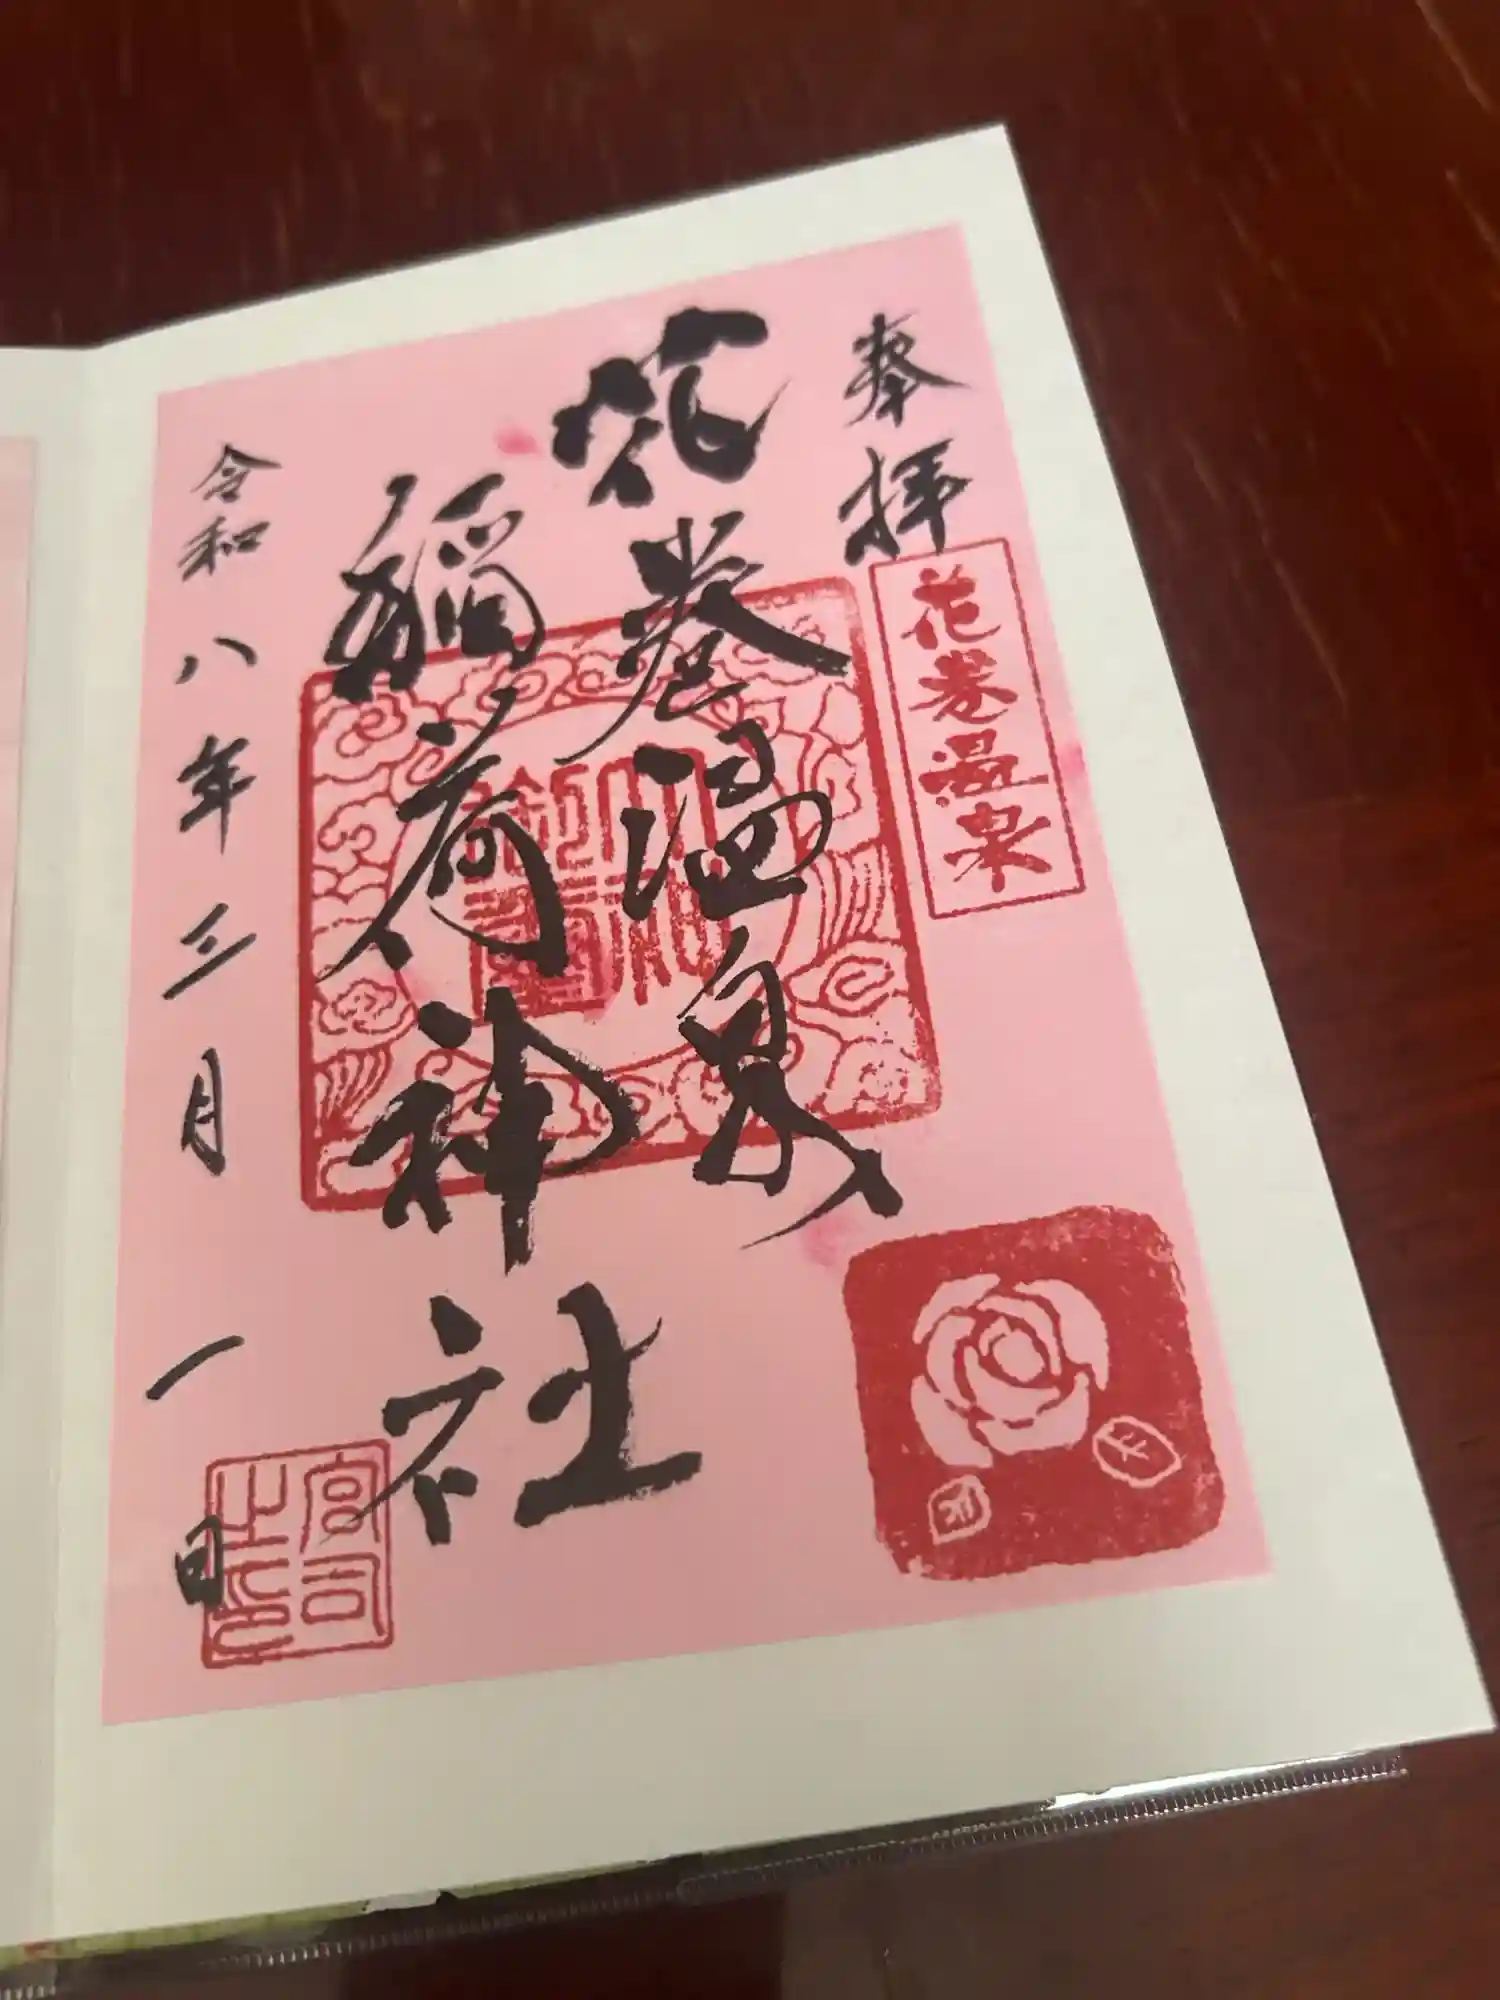 奉拝
花巻温泉
花巻温泉
稲荷神社
令和八年三月一日
宮司之印